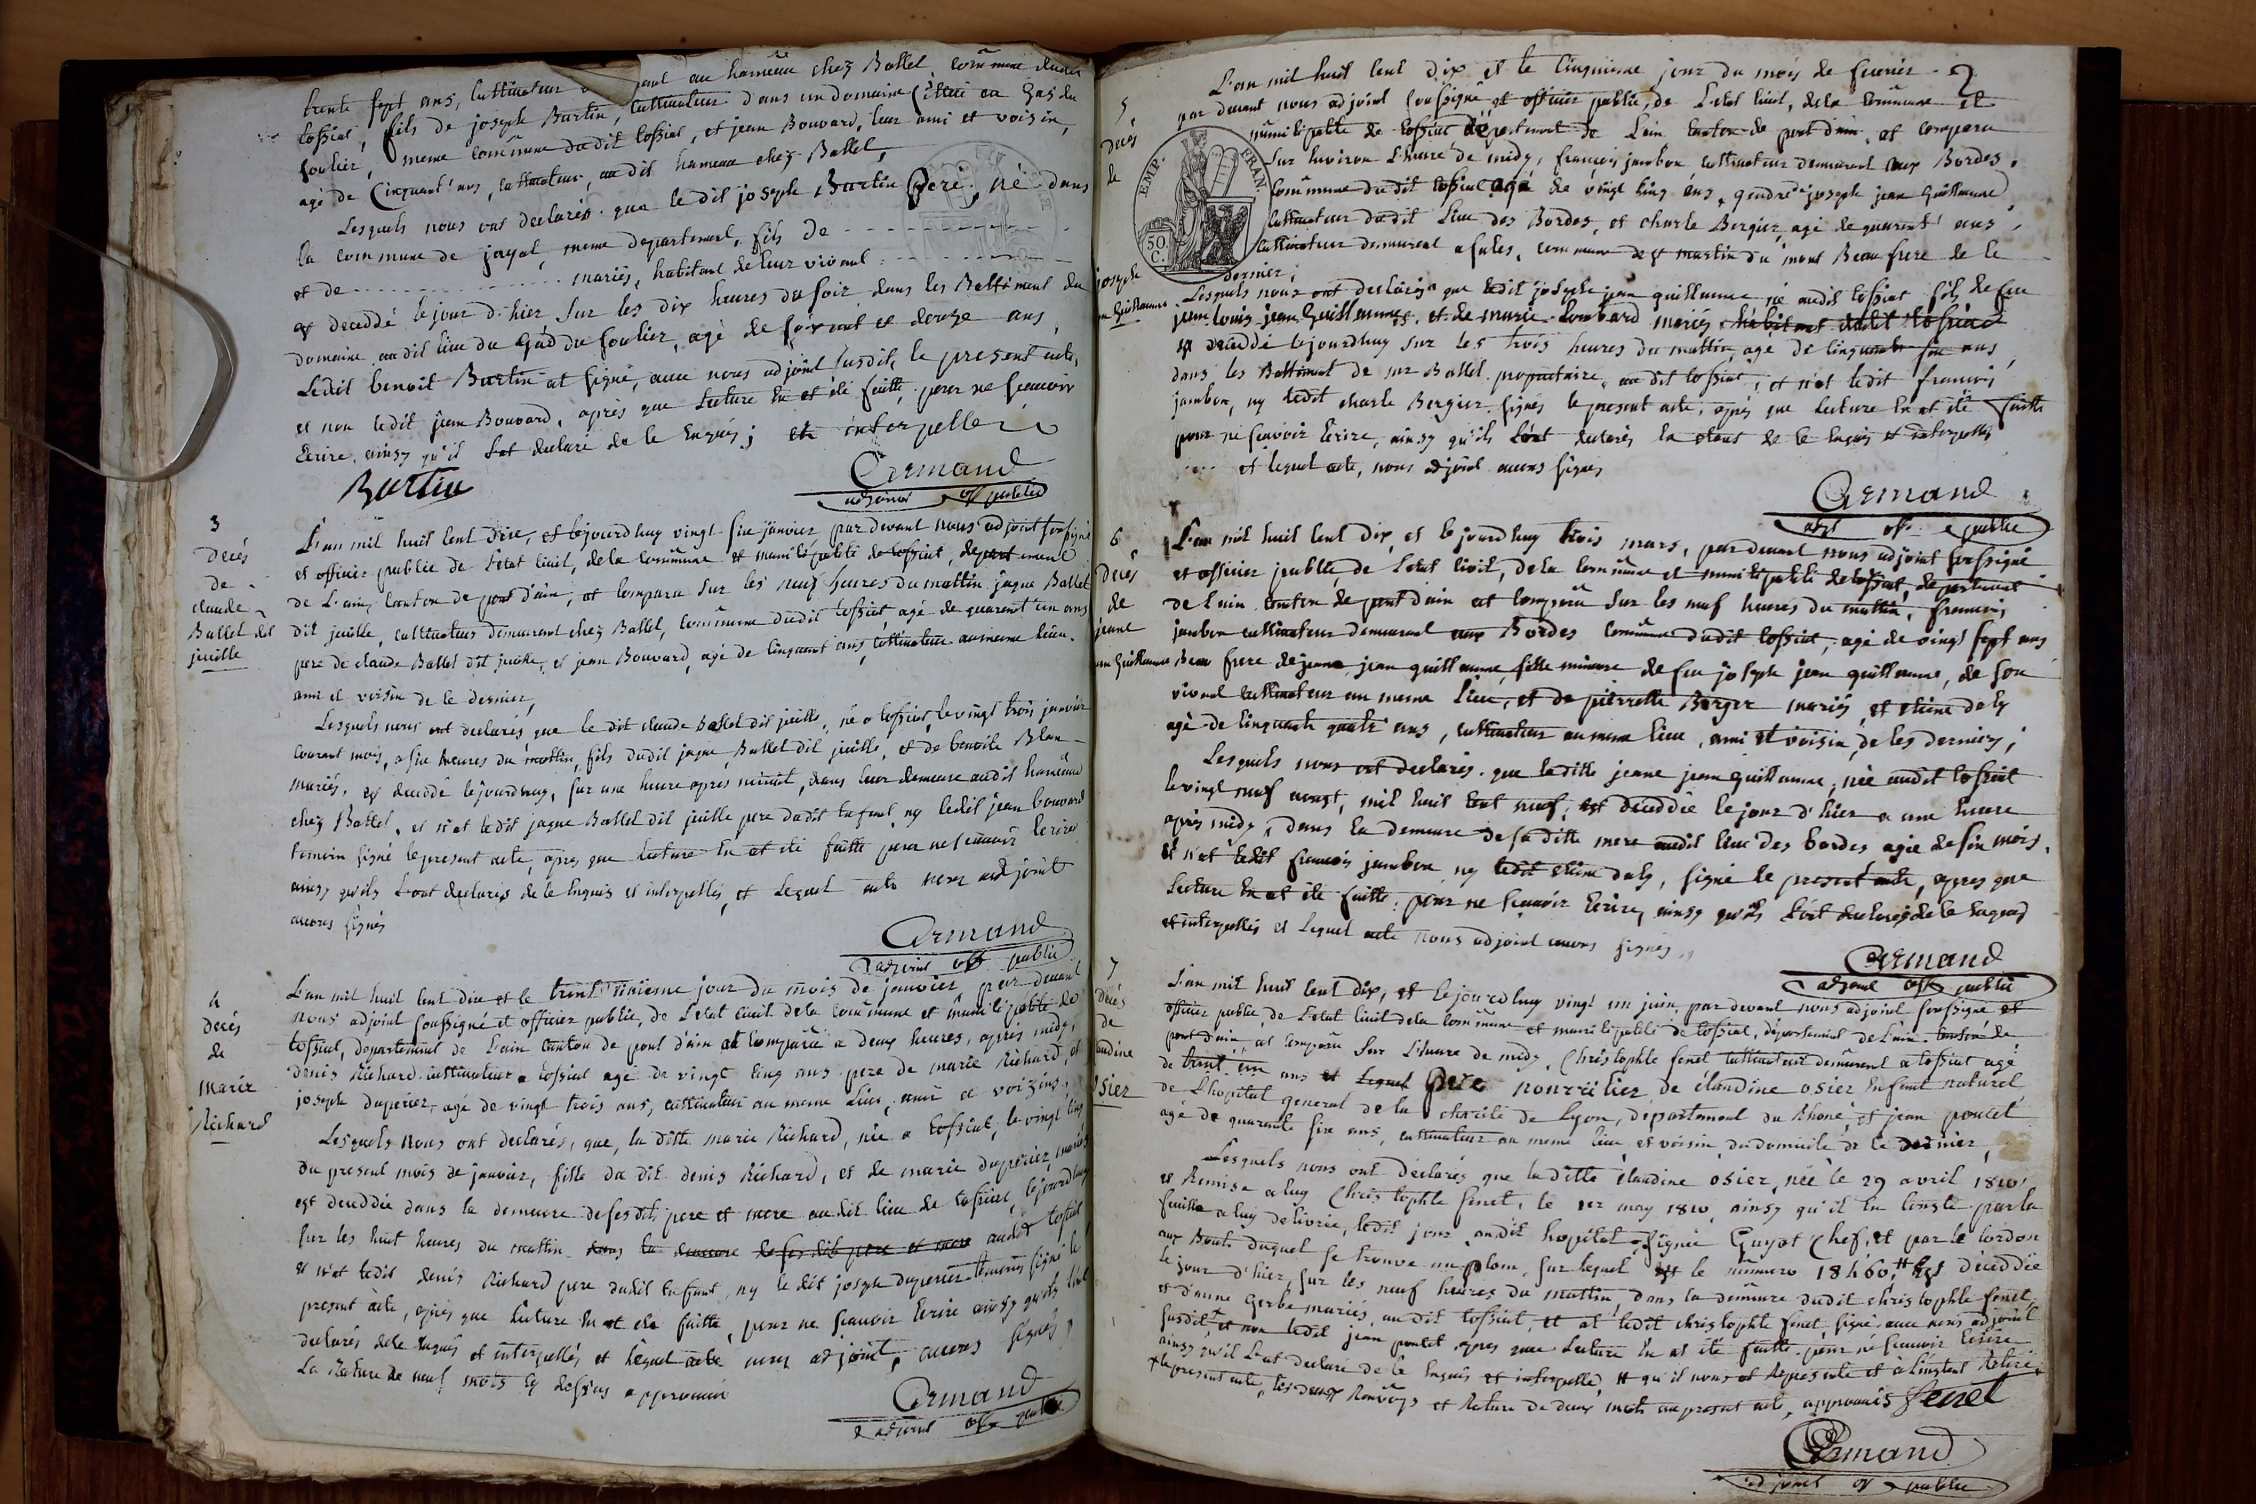 trente sept ans, cultivateur au hameau chez Ballet commune dudit
tossiat, fils de joseph Burtin, cultivateur dans un domaine situé au Gas du
foulier, meme commune du dit tossiat, et jean Bouvard, leur ami et voisin,
agé de Cinquant' ans, cultivateur, au dit hameau chez Ballet,
Lesquels nous ont declarés que le dit joseph Burtin pere, né dans
la commune de jayat, meme departement, fils de
et de mariés, habitant de leur vivant
est deceddé le jour d'hier sur les dix heures du soir dans les Battiment du
domaine audit lieu du Gád du foulier, agé de soixant et douze ans,
Ledit benoit Burtin at signé, avec nous adjoint susdit, le present acte,
et non ledit jean Bouvard, après que Lecture en at été faitte, pour ne scavoir
Ecrire, ainsy qu'il L'at declaré de le Enquis; et interpellé
Burtin
Armand
adjoint off public
3
Decés
de
claude
Ballet dit
juille
L'an mil huit cent dix, et lejourdhuy vingt six janvier par devant nous adjoint soussigné
et officier public de L'etat civil, dela commune et municipalité de tossiat, departement
de L'ain, canton de pont d'ain, at comparu sur les neuf heures du mattin, jaque Ballet
dit juille, cultivateur demeurant chez Ballet, commune dudit tossiat, agé de quarent' un ans
pere de claude Ballet dit juille, et jean Bouvard, agé de cinquant ans, cultivateur au meme lieu,
ami et voisin de le dernier,
Lesquels nous ont declarés, que le dit claude Ballet dit juille, né a tossiat, le vingt trois janvier
courant mois, a six heures du mattin, fils dudit jaque Ballet dit juille, et de benoite Blan
mariés, est deceddé lejourdhuy, sur une heure apres minuit, dans leur demeure audit hameau
chez Ballet, et n'at ledit jaque Ballet dit juille pere dudit Enfant, ny ledit jean bouvard
temoin signé le present acte, apres que Lecture En at été faitte pour ne scavoir Ecrire
ainsy qu'ils L'ont declarés de le Enquis et interpellés, et Lequel acte nous adjoint
avons signés
Armand
adjoint off public
4
Decés
de
Marie
Richard
L'an mil huit cent dix et le trent' unieme jour du mois de janvier, par devant
nous adjoint soussigné et officier public, de L'etat civil dela commune et municipalité de
tossiat, departement de L'ain canton de pont d'ain at comparu a deux heures, après midy,
denis Richard cultivateur a tossiat agé de vingt cinq ans pere de marie Richard, et
joseph duperier, agé de vingt trois ans, cultivateur au meme Lieu, ami et voizins,
Lesquels Nous ont declarés, que, la ditte marie Richard, née a tossiat, le vingt cinq
du present mois de janvier, fille du dit denis Richard, et de marie duperier, mariés
est deceddée dans la demeure de ses dits pere et mere au dit lieu de tossiat, lejourdhuy
sur les huit heures du mattin dans la demeure de ses dits pere et mere audit tossiat
et n'at ledit denis Richard pere dudit Enfant, ny le dit joseph duperier temoins signé le
present acte, après que Lecture En at été faitte, pour ne scavoir Ecrire ainsy qu'ils L'ont
declarés dele Enquis et interpellés et lequel acte nous adjoint, avons signés,
La Rature de neuf mots cy dessus approuvée
Armand
adjoint off public
2
5
Decés
de
joseph
jean Guillaume
EMP. FRAN.
50. C.
L'an mil huit cent dix et le Cinquieme jour du mois de fevrier
par devant nous adjoint soussigné et officier public, de L'etat civil, dela commune et
municipalité de tossiat département de L'ain canton de pont d'ain, at comparu
sur Environ L'heure de midy, françois jambon cultivateur demeurant aux Bordes,
commune du dit tossiat agé de vingt cinq ans, gendre de joseph jean Guillaume
cultivateur dudit Lieu des Bordes, et charle Bergier, agé de quarent' ans,
cultivateur demeurant a sales, commune de st martin du mont Beau frere de le
dernier;
Lesquels nous ont declarés que ledit joseph jean guillaume né audit tossiat fils de feu
jean Louis jean Guillaume, et de marie Lombard mariés habitant dudit tossiat
est deceddé lejourdhuy sur les trois heures du mattin, agé de cinquante six ans,
dans les Battiment de mr Ballet proprietaire, au dit tossiat; et n'at ledit francois
jambon, ny ledit charle Bergier signés le present acte, après que Lecture En at été faitte
pour ne scavoir Ecrire, ainsy qu'ils L'ont declarés la etant de le Enquis et interpellés
et lequel acte, nous adjoint avons signés
Armand
adjt off public
6
Decés
de
jeane
jean Guillaume
L'an mil huit cent dix, et lejourdhuy trois mars, par devant nous adjoint soussigné
et officier public, de L'etat civil, dela commune et municipalité de tossiat, departement
de L'ain canton de pont d'ain at comparu sur les neuf heures du mattin, francois
jambon cultivateur demeurant aux Bordes commune dudit tossiat, agé de vingt sept ans
Beau frere de jeane jean guillaume, fille mineure de feu joseph jean guillaume, de son
vivant cultivateur au meme Lieu, et de pierrette Berger mariés, et etiene daly
agé de cinquante quatre ans, cultivateur au meme lieu, ami et voisin, de les derniers;
Lesquels nous ont declarés que laditte jeane jean guillaume, née audit tossiat
le vingt neuf aougt, mil huit cent neuf, est deceddée le jour d'hier a une heure
après midy, dans la demeure de sa ditte mere audit lieu des bordes agée de six mois,
Et n'at ledit francois jambon ny ledit etiene daly, signé le present acte, apres que
Lecture En at été faitte, pour ne scavoir Ecrire, ainsy qu'ils L'ont declarés de le Enquis
et interpellés et Lequel acte Nous adjoint avons signés,
Armand
adjoint off public
7
Decés
de
claudine
Osier
L'an mil huit cent dix, et lejourdhuy vingt un juin, par devant nous adjoint soussigné et
officier public, de L'etat civil dela commune et municipalité de tossiat, département de L'ain canton de
pont d'ain, at comparu sur L'heure de midy, Christophle fenet cultivateur demeurant a tossiat agé
de trent' un ans et Lequel pere nourricier de claudine osier Enfant naturel
de L'hopital general de la charité de Lyon, departement du Rhone, et jean poncet
agé de quarante six ans, cultivateur au meme lieu, et voisin du domicile de le dernier,
Lesquels nous ont déclarés que la ditte claudine osier, née le 29 avril 1810,
et Remise a luy Christophle fenet, le 1er may 1810, ainsy qu'il En conste par la
feuille a luy delivrée, ledit jour audit hopital, signée Guyot chef, et par le cordon
aux Bouts duquel se trouve un plom, sur lequel est le numero 18460, est déceddée
le jour d'hier, sur les neuf heures du mattin, dans la demeure dudit christophle fenet
et d'anne Gerbe mariés, au dit tossiat, et at ledit christophle fenet, signé avec nous adjoint
susdit, et non ledit jean poncet apres que Lecture En at été faitte pour ne scavoir Ecrire
ainsy qu'il L'at declaré de le Enquis et interpellé, et qu'il nous at Représenté et à L'instant Retiré
le present acte, les deux Renvoys et Rature de deux mots au present acte, approuvés fenet
Armand
adjoint off public